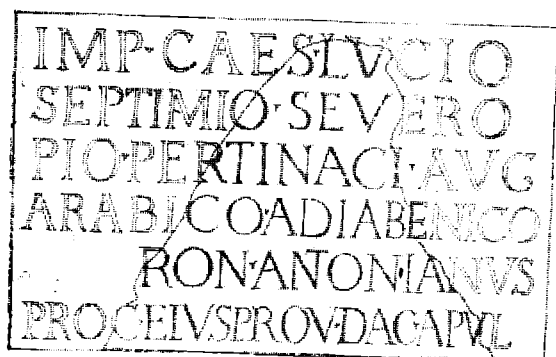 IMP·CAES·LVCIO
SEPTIMIO·SEVERO
PIO·PERTINACI·AVG
ARABICO ADIABENICO
RON·ANTON·IANVS
PROC EIVS PROV·DAC·APVL